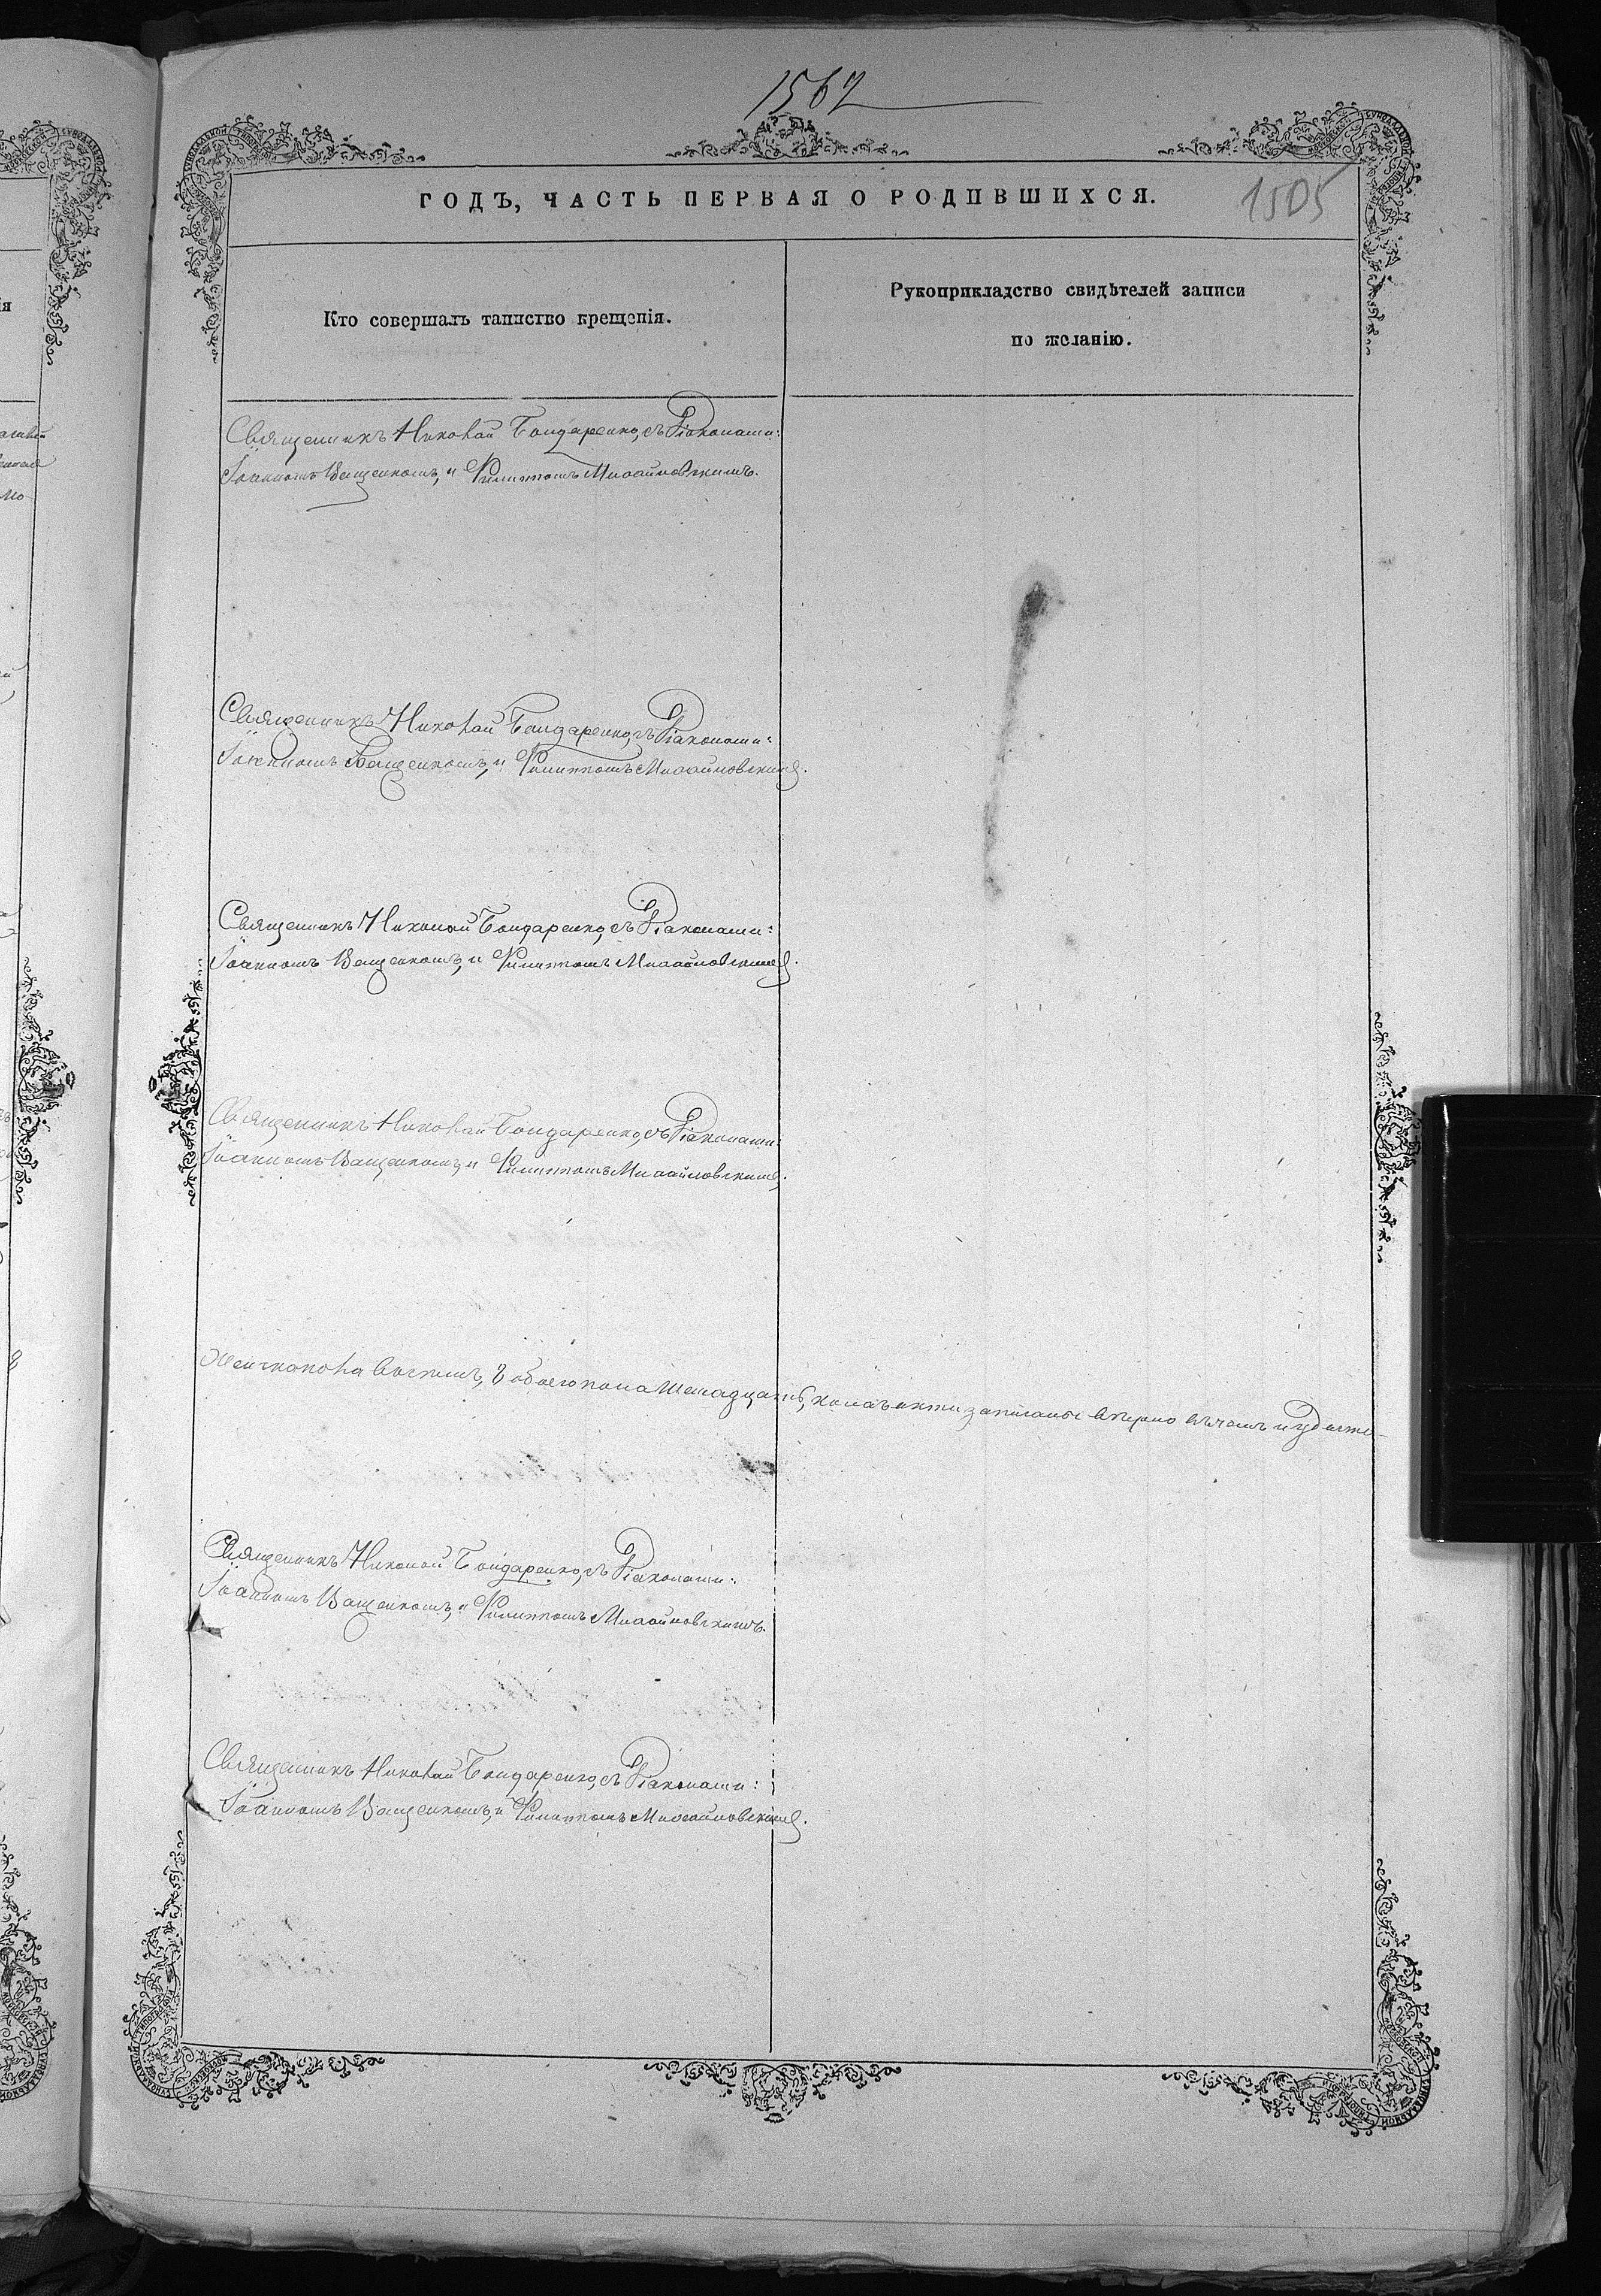 1567
1505
ГОДЪ, ЧАСТЬ ПЕРВАЯ О РОДИВШИХСЯ.
Кто совершалъ таинство крещенія.
Рукоприкладство свидѣтелей записи
по желанію.
Священникъ Николай Бондаренко, съ Діаконами:
Іоанномъ Ващенкомъ, и Филиппомъ Михайловскимъ.
Священникъ Николай Бондаренко, съ Діаконами:
Іоанномъ Ващенкомъ, и Филиппомъ Михайловскимъ.
Священникъ Николай Бондаренко, съ Діаконами:
Іоанномъ Ващенкомъ, и Филиппомъ Михайловскимъ.
Священникъ Николай Бондаренко, съ Діаконами:
Іоанномъ Ващенкомъ, и Филиппомъ Михайловскимъ.
женскаго пола восемь, а обоего пола записаны вѣрно въ чемъ и удосто-
Священникъ Николай Бондаренко, съ Діаконами:
Іоанномъ Ващенкомъ, и Филиппомъ Михайловскимъ.
Священникъ Николай Бондаренко, съ Діаконами:
Іоанномъ Ващенкомъ, и Филиппомъ Михайловскимъ.